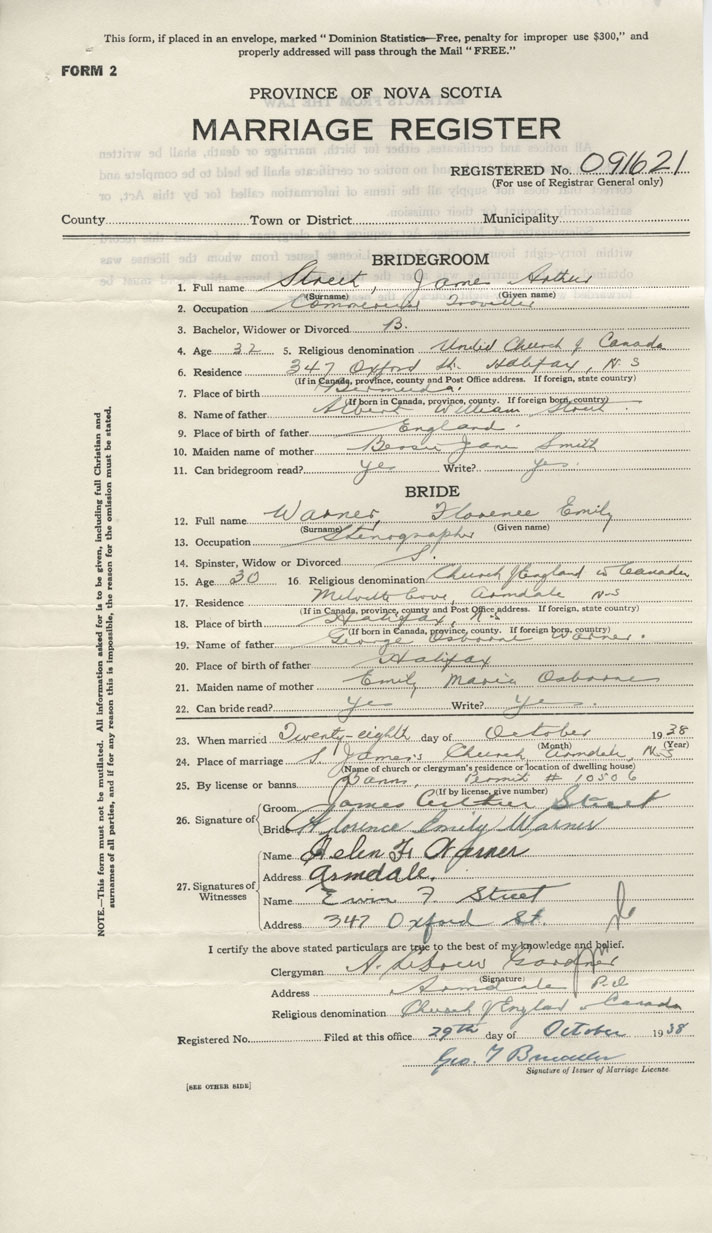 This form, if placed in an envelope, marked "Dominion Statistics—Free, penalty for improper use $300," and
properly addressed will pass through the Mail "FREE."
FORM 2
PROVINCE OF NOVA SCOTIA
MARRIAGE REGISTER
REGISTERED No. 091621
(For use of Registrar General only)
County Town or District Municipality
BRIDEGROOM
1. Full name Street, James Arthur
(Surname) (Given name)
2. Occupation Commercial Traveller
3. Bachelor, Widower or Divorced B.
4. Age 32 5. Religious denomination United Church of Canada
6. Residence 347 Oxford St. Halifax, N.S
(If in Canada, province, county and Post Office address. If foreign, state country)
7. Place of birth Bermuda.
(If born in Canada, province, county. If foreign born, country)
8. Name of father Albert William Street
9. Place of birth of father England.
10. Maiden name of mother Bessie Jane Smith
11. Can bridegroom read? Yes Write? Yes.
BRIDE
12. Full name Warner, Florence Emily
(Surname) (Given name)
13. Occupation Stenographer
14. Spinster, Widow or Divorced S.
15. Age 30 16. Religious denomination Church of England in Canada
17. Residence Cove, Armdale N.S
(If in Canada, province, county and Post Office address. If foreign, state country)
18. Place of birth Halifax, N.S
(If born in Canada, province, county. If foreign born, country)
19. Name of father George Osborne Warner.
20. Place of birth of father Halifax
21. Maiden name of mother Emily Marie Osborne
22. Can bride read? Yes Write? Yes.
23. When married Twenty-eighth day of October 1938
(Month) (Year)
24. Place of marriage S. James's Church, Armdale, N.S
(Name of church or clergyman's residence or location of dwelling house)
25. By license or banns Banns, Permit # 10506
(If by license, give number)
26. Signature of Groom James Arthur Street
Bride Florence Emily Warner
27. Signatures of Witnesses
Name Helen F. Warner
Address Armdale.
Name Erwin F. Street
Address 347 Oxford St.
I certify the above stated particulars are true to the best of my knowledge and belief.
Clergyman Gardner
(Signature)
Address Armdale P.O
Religious denomination Church of England in Canada
Registered No. Filed at this office 29th day of October 1938
Geo. F
Signature of Issuer of Marriage License
[SEE OTHER SIDE]
NOTE.—This form must not be mutilated. All information asked for is to be given, including full Christian and
surnames of all parties, and if for any reason this is impossible, the reason for the omission must be stated.